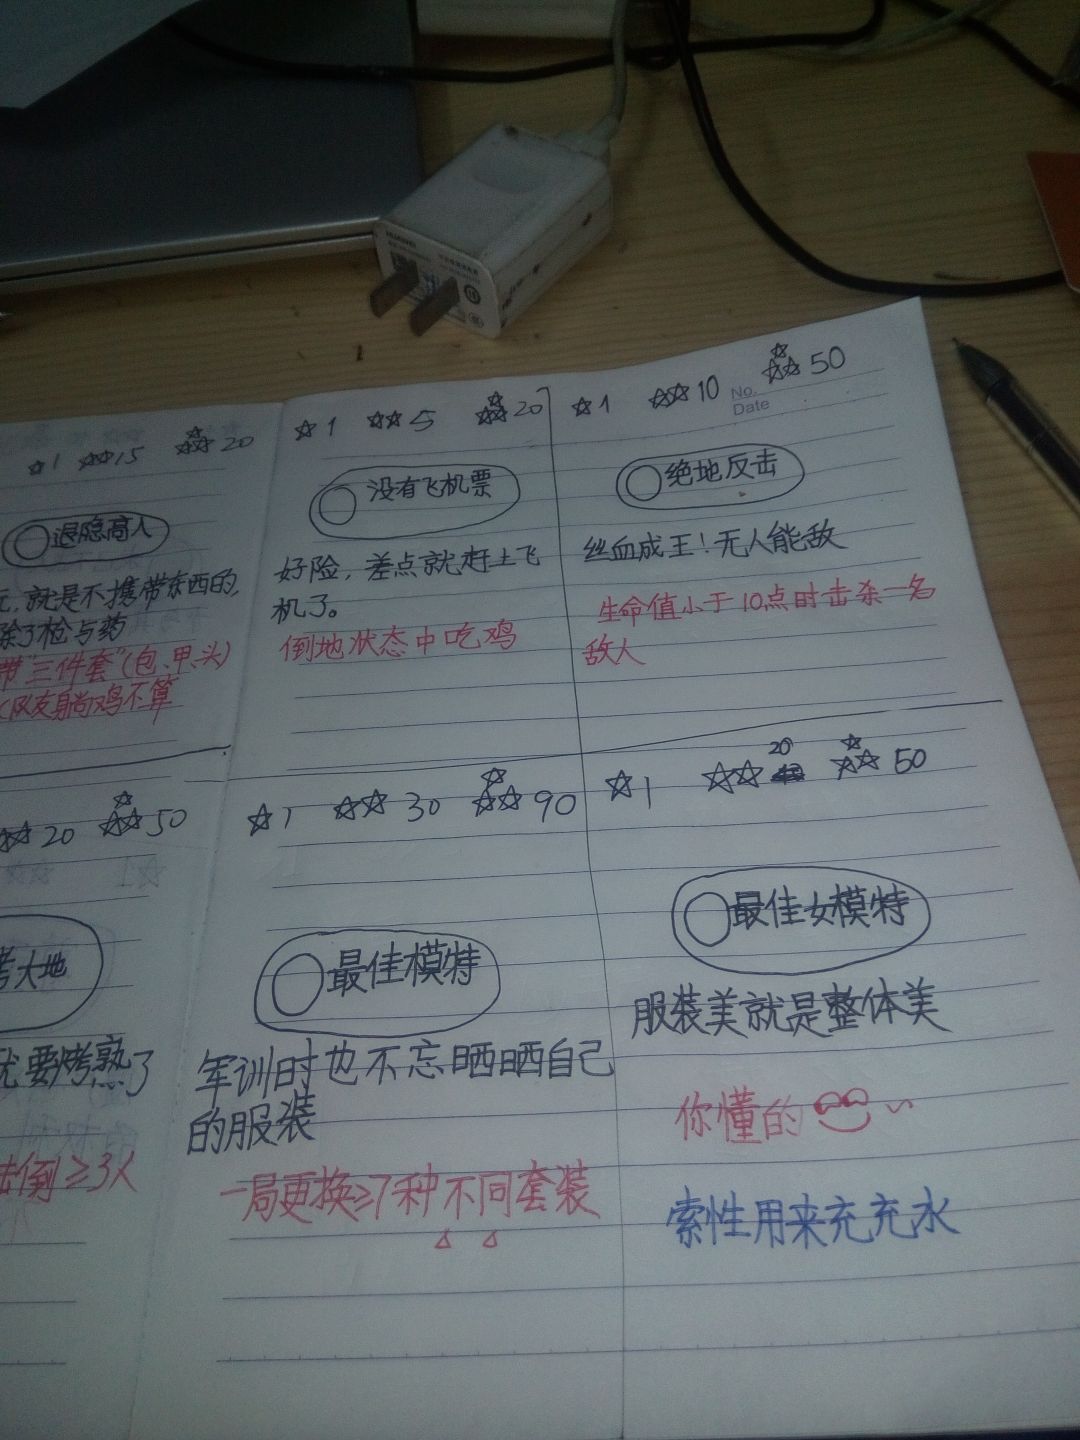 HUAWEI
☆1 ☆☆15 ☆☆☆20
退隐高人
就是不携带东西的,
除了枪与药
带"三件套"(包、甲、头)
队友躺鸡不算
☆1 ☆☆5 ☆☆☆20
没有飞机票
好险,差点就赶上飞
机了。
倒地状态中吃鸡
☆1 ☆☆10 ☆☆☆50
No.
Date
绝地反击
丝血成王!无人能敌
生命值小于10点时击杀一名
敌人
☆☆20 ☆☆☆50
烤大地
就要烤熟了
击倒≥3人
☆1 ☆☆30 ☆☆☆90
最佳模特
军训时也不忘晒晒自己
的服装
一局更换≥7种不同套装
☆1 ☆☆20 ☆☆☆50
最佳女模特
服装美就是整体美
你懂的
索性用来充充水